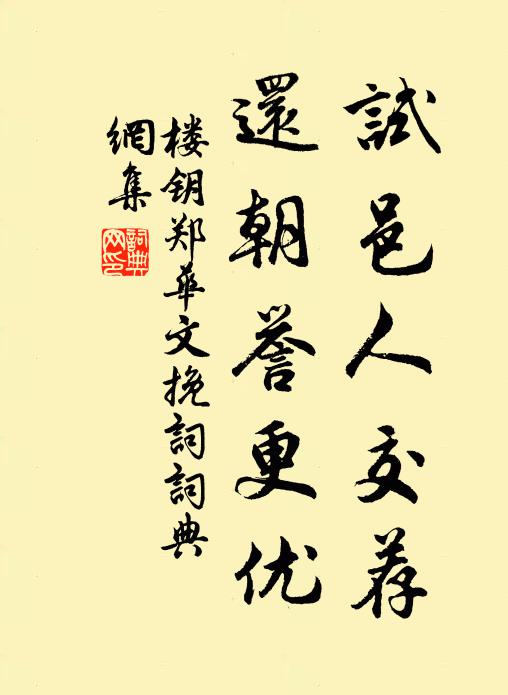 試邑人交荐
還朝誉更优
楼钥郑华文挽詞詞典
網集
詞典
网印